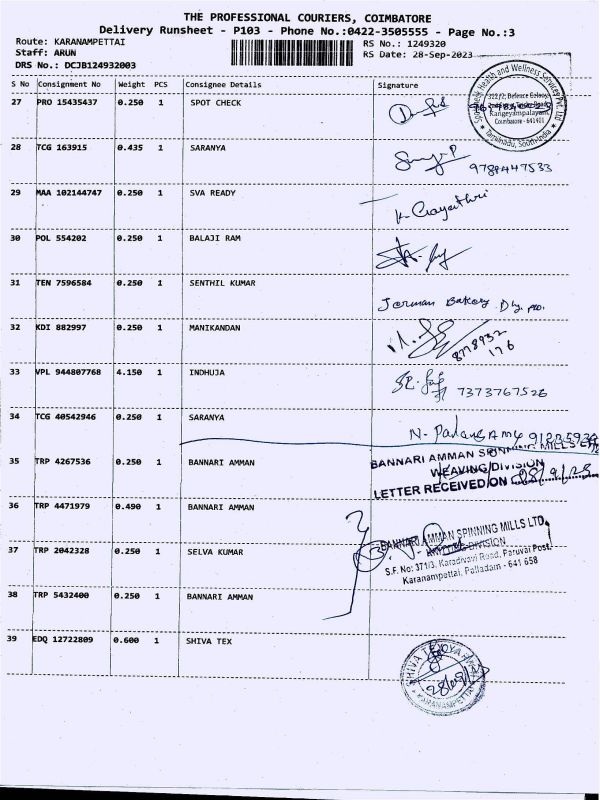 THE PROFESSIONAL COURIERS, COIMBATORE
Delivery Runsheet - P103 - Phone No.:0422-3505555 - Page No.:3
Route: KARANAMPETTAI RS No.: 1249320
Staff: ARUN RS Date: 28-Sep-2023
DRS No.: DCJB124932003
S No Consignment No Weight PCS Consignee Details Signature
27 PRO 15435437 0.250 1 SPOT CHECK
Health and Wellness Services Pvt. Ltd
Defence Colony
Kangeyampalayam
Coimbatore - 641401
Tamilnadu, South-India
28 TCG 163915 0.435 1 SARANYA
9789447533
29 MAA 102144747 0.250 1 SVA READY K. Gayathri
30 POL 554202 0.250 1 BALAJI RAM
31 TEN 7596584 0.250 1 SENTHIL KUMAR
Jerman Bakery
32 KDI 882997 0.250 1 MANIKANDAN
8778932
176
33 VPL 944807768 4.150 1 INDHUJA
7373767526
34 TCG 40542946 0.250 1 SARANYA
35 TRP 4267536 0.250 1 BANNARI AMMAN
BANNARI AMMAN SPINNING MILLS
WEAVING DIVISION
LETTER RECEIVED ON 28/9/23
36 TRP 4471979 0.490 1 BANNARI AMMAN
BANNARI AMMAN SPINNING MILLS LTD,
DIVISION
37 TRP 2042328 0.250 1 SELVA KUMAR
S.F. No: 371/3, Karadivavi Road, Paruvai Post,
Karanampettai, Palladam - 641 658
38 TRP 5432400 0.250 1 BANNARI AMMAN
39 EDQ 12722809 0.600 1 SHIVA TEX
SHIVA TEX
KARANAMPETTAI